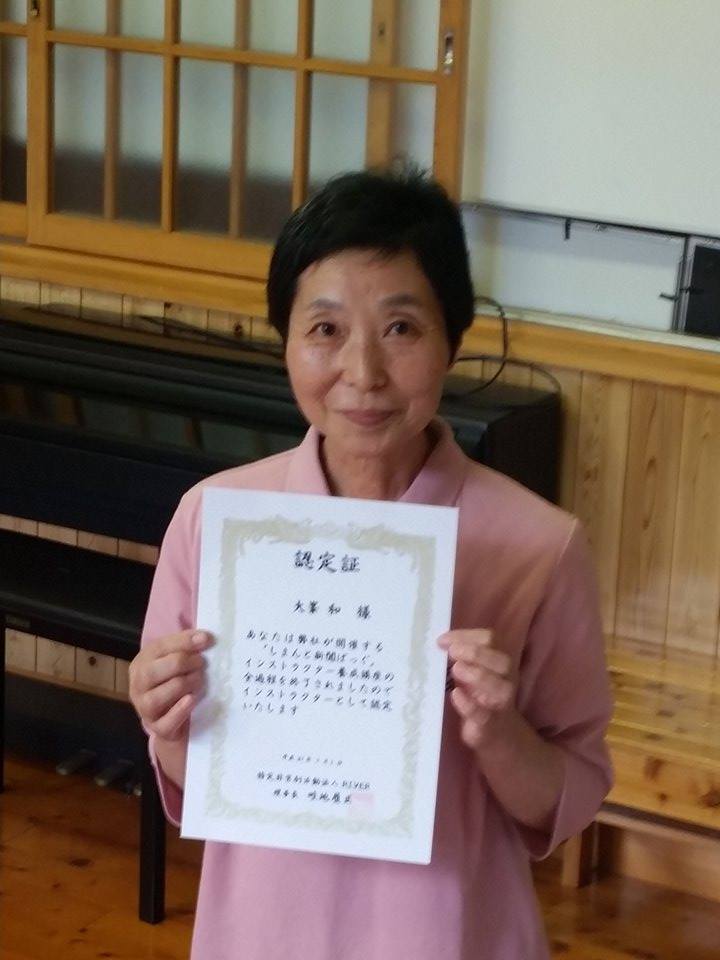 認定証
大峯 和 様
あなたは弊社が開催する
「しまんと新聞ばっぐ」
インストラクター養成講座の
全過程を終了されましたので
インストラクターとして認定
いたします
特定非営利活動法人RIVER
理事長